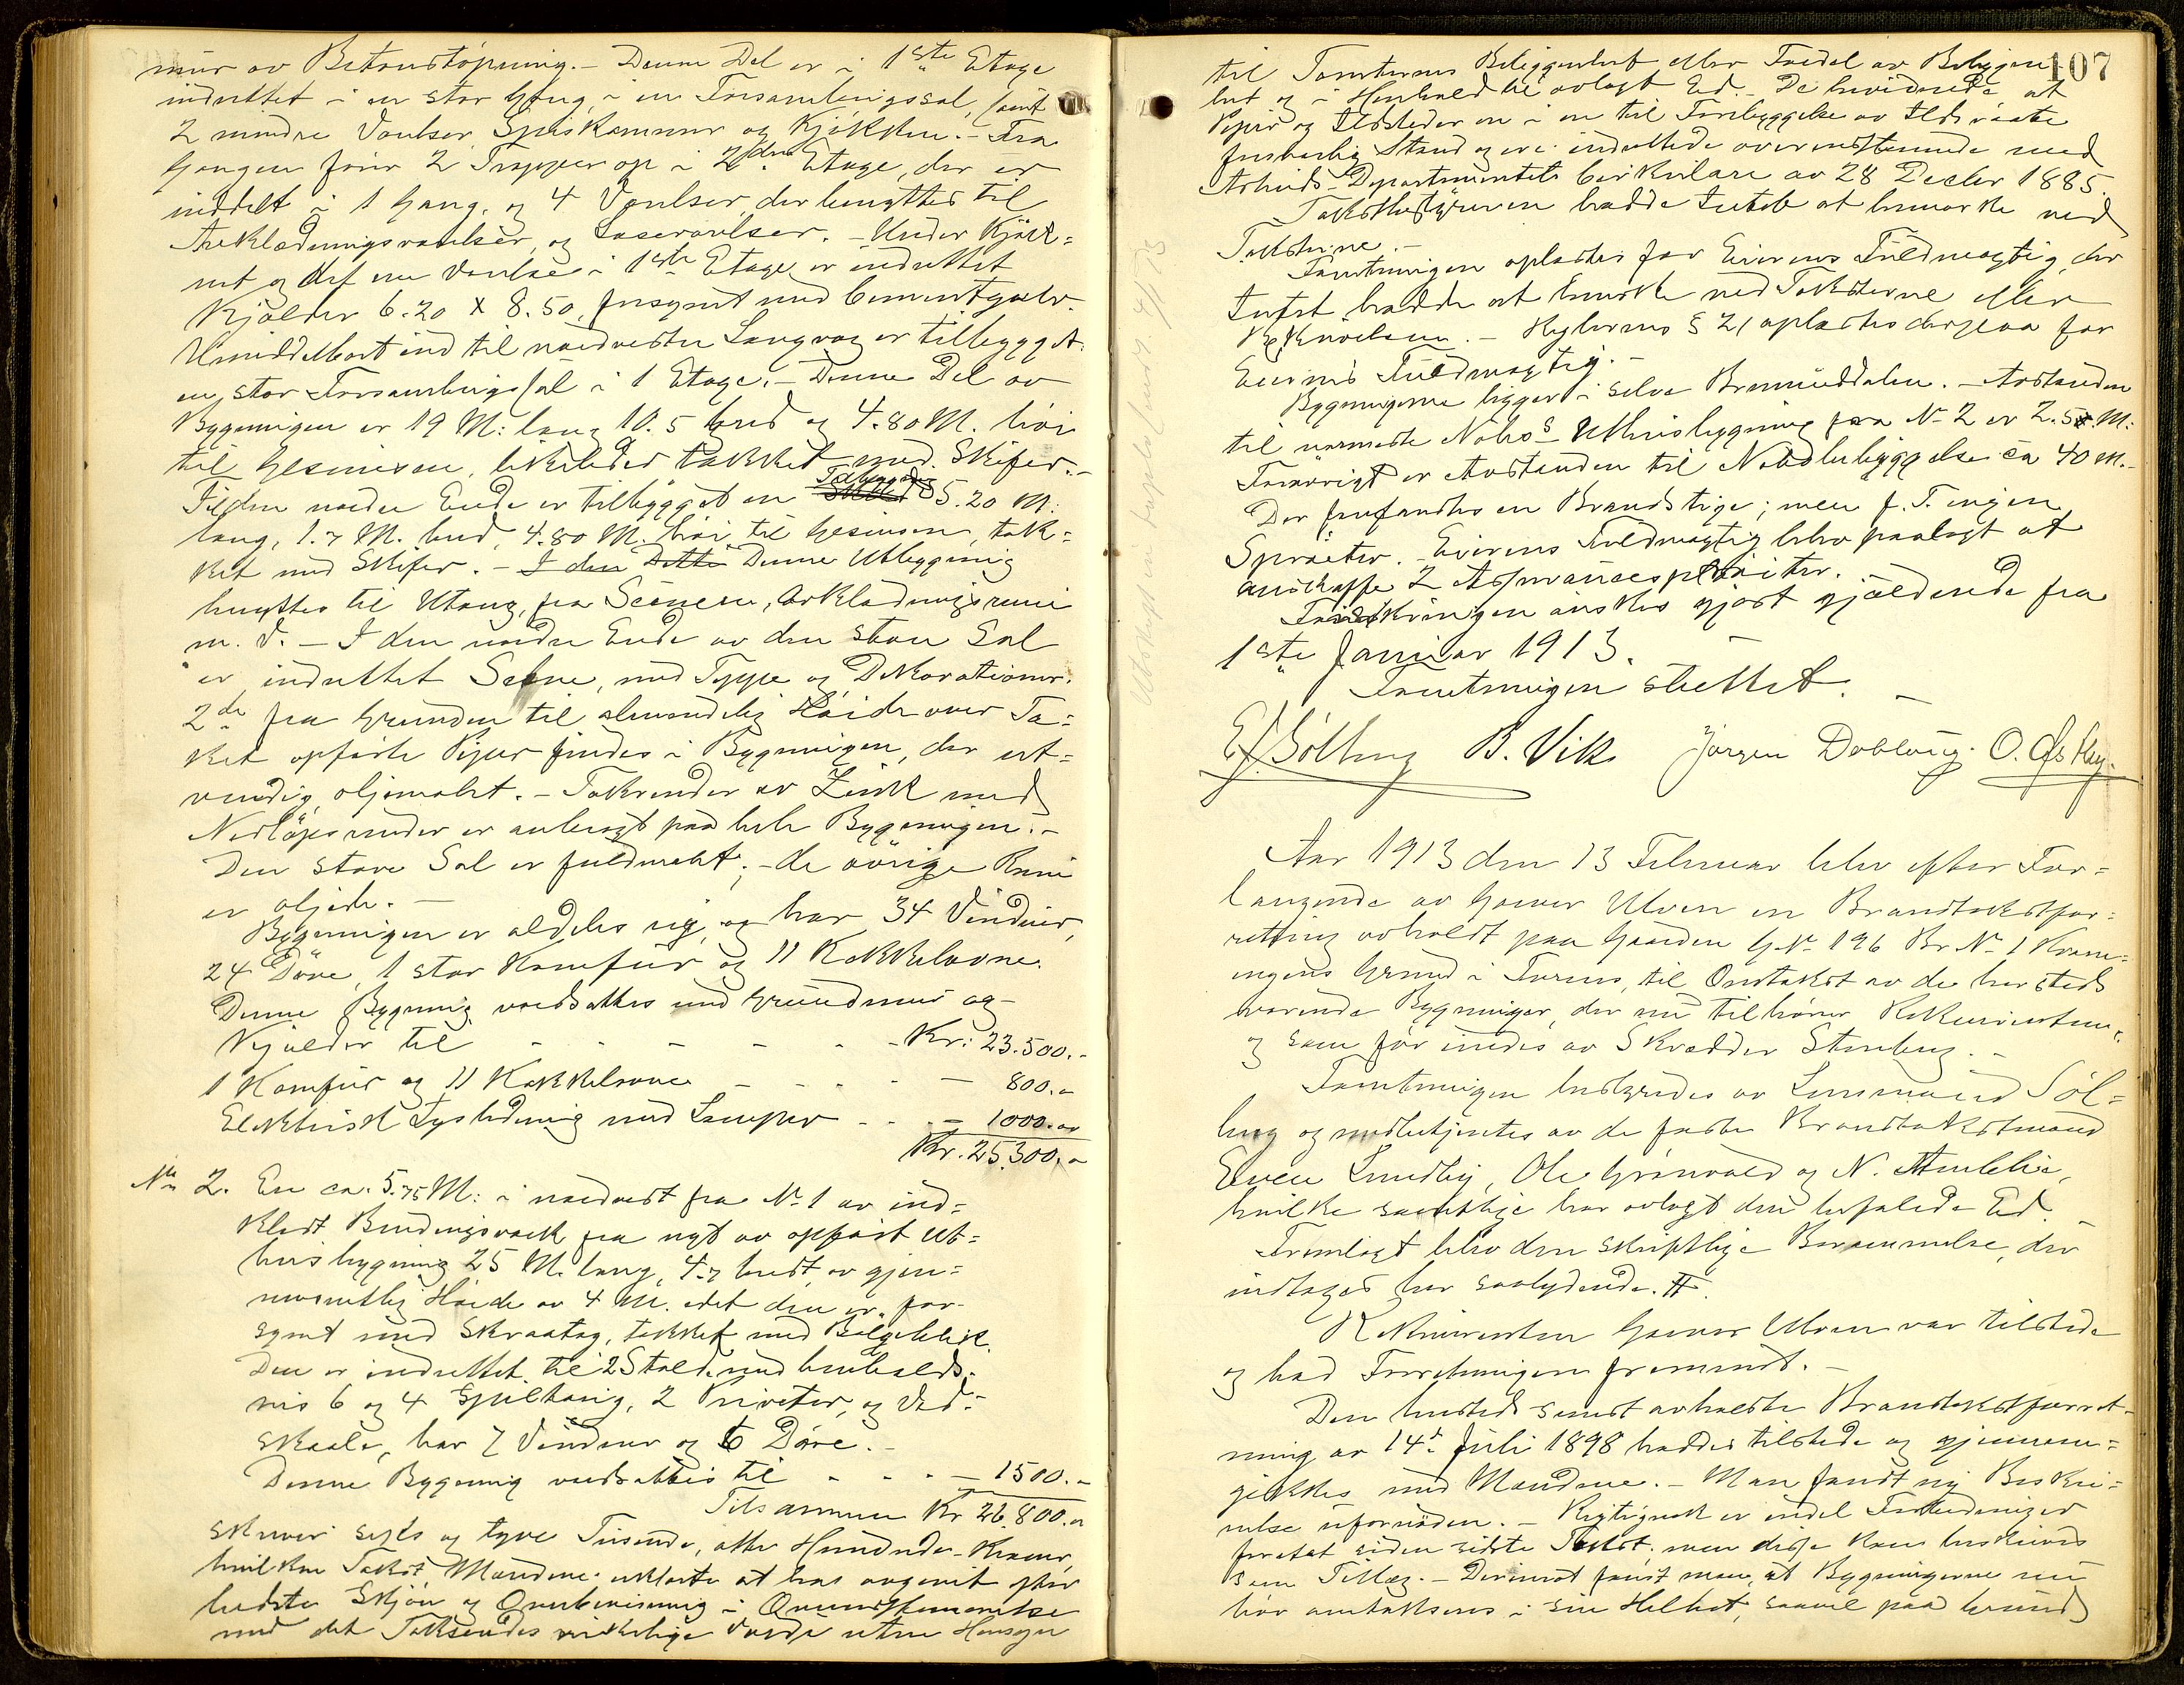 mur av Betonstøpning. – Denne Del er i 1ste Etage
indrettet i en stor Gang, i en Forsamlingssal, samt
2 mindre Værelser, Spiskammer og Kjøkken. – Fra
Gangen fører 2 Trapper op i 2den Etage, der er
inddelt i 1 Gang, og 4 Værelser, der benyttes til
Avklædningsværelser, og Læseværelser. – Under Kjøk=
net og det ene Værelse i 1ste Etage er indrettet
Kjælder 6.20 x 8.50, forsynet med Cementgulv.
Umiddelbart ind til nordvestre Langvæg er tilbygget
en stor Forsamlingssal i 1 Etage. – Denne Del av
Bygningen er 19 M: lang 10.5 bred og 4.80 M. høi
til Gesimsen, likeledes tækket med Skifer. –
Til den nordre Ende er tilbygget en Tilbygg 5.20 M:
lang, 1.7 M. bred, 4.80 M. høi til Gesimsen, tæk=
ket med Skifer. – I den Dette Denne Utbygning
benyttes til Utgang fra Scenen, Avklædningsrum
m. v. – I den nordre Ende av den store Sal
er indrettet Scene, med Teppe og Dekorationer.
2de fra Grunden til almindelig Høide over Ta=
ket opførte Piper findes i Bygningen, der er ut=
vendig oljemalet. – Takrender av Zink med
Nedløpsrender er anbragt paa hele Bygningen. –
Den store Sal er fuldmalet; – de øvrige Rum
er oljede. –
Bygningen er aldeles ny, og har 34 Vinduer,
24 Døre, 1 stor Komfur og 11 Kakkelovne.
Denne Bygning værdsættes med Grundmur og
Kjælder til - - - - - - Kr: 23.500. -
1 Komfur og 11 Kakkelovne - - - - - 800. -
Elektrisk Lysledning med Lamper - - - 1000. -
Kr. 25.300. -
No 2. En ca. 5.75 M: i nordvest fra No 1 av ind=
klædt Bindingsværk fra nyt av opført Ut=
husbygning 25 M. lang, 4.7 bredt, av gjen=
nemsnitlig Høide av 4 M. idet den er for-
synet med Skraatag, tækket med Bølgeblik.
Den er indrettet til 2 Stalde med henholds-
vis 6 og 4 Spiltaug, 2 Priveter, og Ved=
skaale, har 7 Vinduer og 6 Døre. –
Denne Bygning værdsættes til - - - - 1500. -
Tilsammen Kr 26.800. -
skriver seks og tyve Tusinde, otte Hundrede Kroner,
hvilken Takst Mændene erklærte at ha avgivet efter
bedste Skjøn og Overbevisning i Overensstemmelse
med det Takseredes virkelige Værdi uten Hensyn
107
til Tomternes Beliggenhet eller Fordel av Beliggen-
het og i Henhold til avlagt Ed. – De bevidnede at
Piper og Ildsteder er i en til Forebyggelse av Ildsvaade
forsvarlig Stand og er indrettede overensstemmende med
Arbeids-Departementets Cirkulære av 28 Decbr 1885.
Takstbestyreren hadde Intet at bemærke ved
Taksterne. –
Forretningen oplæstes for Eierens Fuldmægtig, der
Intet hadde at bemærke ved Taksterne eller
Beskrivelsen. – Reglernes § 21 oplæstes derpaa for
Eierens Fuldmægtig. –
Bygningerne ligger i selve Brumunddalen. – Avstanden
til nærmeste Nabos Uthusbygning fra No 2 er 2.5 M:
Forøvrigt er Avstanden til Nabobebyggelse ca 40 M. –
Der forefandtes en Brandstige; men f. T. ingen
Sprøiter. – Eierens Fuldmægtig blev paalagt at
anskaffe 2 Assurancesprøiter.
Forsikringen ønskes gjort gjældende fra
1ste Januar 1913.
Forretningen sluttet. –
Utskrift en tapet lensm. 4/1 13
E. Sølberg B. Vik. Jørgen Dobloug. O. Ofstby.
Aar 1913 den 13 Februar blev efter For=
langende av Gunner Ulven en Brandtakstfor=
retning avholdt paa Gaarden G.No 196 Br No 1 Kvern=
engens Grund i Furnes, til Omtakst av de hersteds
værende Bygninger, der nu tilhører Rekvirenten,
og som før eiedes av Skrædder Stenberg. –
Forretningen bestyredes av Lensmand Søl=
berg og medbetjentes av de faste Brandtakstmænd
Even Smedby, Ole Grønvold og N. Amblie,
hvilke samtlige har avlagt den befalede Ed. –
Fremlagt blev den skriftlige Berammelse, der
indtages her saalydende. #.
Rekvirenten Gunner Ulven var tilstede
og bad Forretningen fremmet. –
Den hersteds senest avholdte Brandtakstforret-
ning av 14de Juli 1898 haddes tilstede og gjennem=
gikkes med Mændene. – Man fandt ny Beskri=
velse ufornøden. – Rigtignok er endel Forandringer
foretat siden sidste Takst, men disse kan beskrives
som Tillæg. – Derimot fandt man, at Bygningerne nu
bør omtakseres i sin Helhet, saavel paa Grund